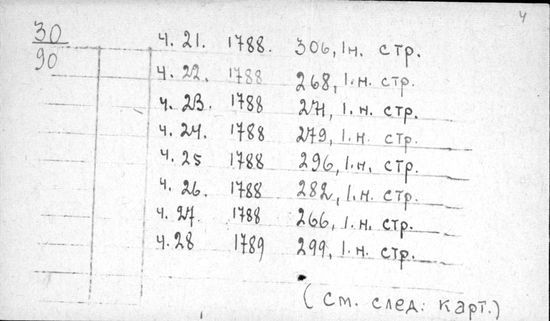 4
30
90
ч. 21. 1788. 306, 1 н. стр.
ч. 22. 1788 268, 1. н. стр.
ч. 23. 1788 271, 1. н. стр.
ч. 24. 1788 279, 1. н. стр.
ч. 25 1788 296, 1. н. стр.
ч. 26. 1788 282, 1. н. стр.
ч. 27. 1788 266, 1. н. стр.
ч. 28 1789 299, 1. н. стр.
(см. след. карт.)